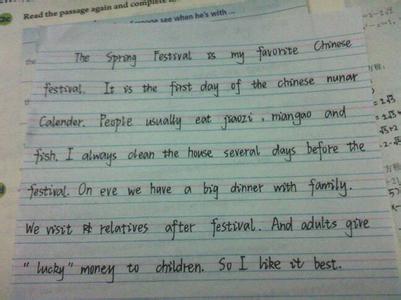 Read the passage again and complete
see when he's with ...
The Spring Festival is my favorite Chinese
festival. It is the first day of the chinese nunar
Calender. People usually eat jiaozi, niangao and
fish. I always clean the house several days before the
festival. On eve we have a big dinner with family.
We visit relatives after festival. And adults give
"lucky" money to children. So I like it best.